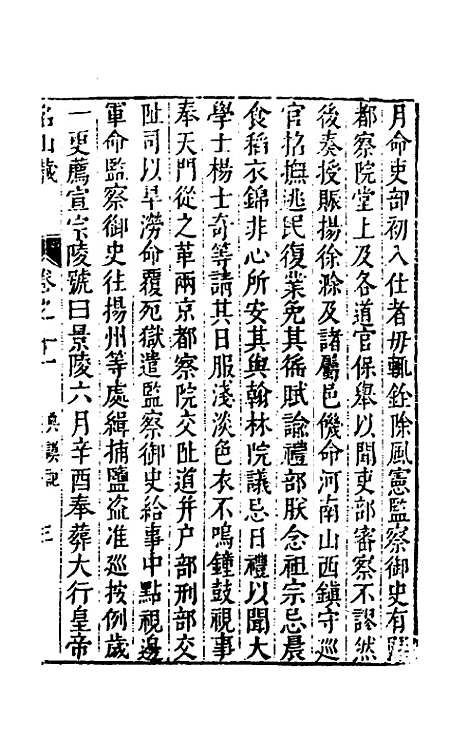 月命吏部初入仕者毋輒銓除風憲監察御史有闕
都察院堂上及各道官保舉以聞吏部審察不謬然
後奏授賑揚徐滁及諸屬邑饑命河南山西鎮守巡
官招撫逃民復業免其徭賦諭禮部朕念祖宗忌晨
食稻衣錦非心所安其與翰林院議忌日禮以聞大
學士楊士奇等請其日服淺淡色衣不鳴鐘鼓視事
奉天門從之革兩京都察院交阯道并戶部刑部交
阯司以旱澇命覆冤獄遣監察御史給事中點視邊
軍命監察御史往揚州等處緝捕鹽盗准巡按例歲
一更薦宣宗陵號曰景陵六月辛酉奉葬大行皇帝
名山藏 卷之十一 典謨記 三